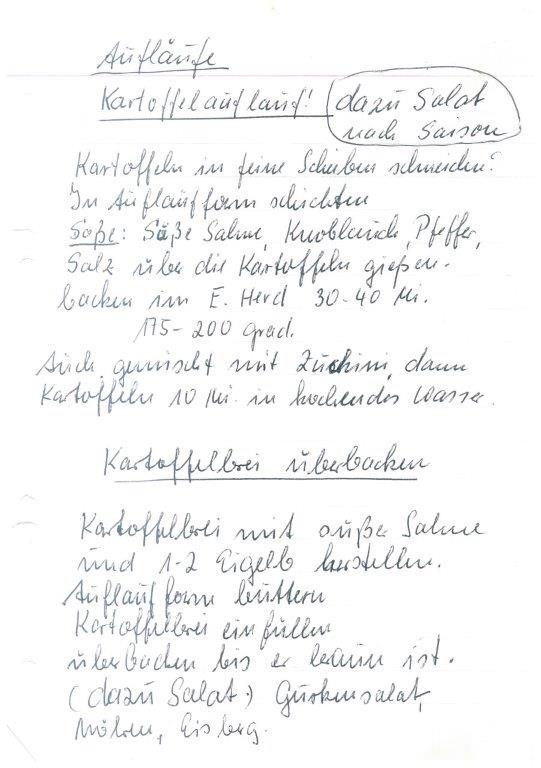 Aufläufe
Kartoffelauflauf! dazu Salat
nach Saison
Kartoffeln in feine Scheiben schneiden:
In Auflaufform schichten
Soße: Süße Sahne, Knoblauch, Pfeffer,
Salz über die Kartoffeln gießen.
backen im E. Herd 30-40 Mi.
175-200 grad.
Auch gemischt mit Zuchini, dann
Kartoffeln 10 Mi. in kochendes Wasser.
Kartoffelbrei überbacken
Kartoffelbrei mit außer Sahne
und 1-2 Eigelb herstellen.
Auflaufform buttern
Kartoffelbrei einfüllen
überbacken bis er braun ist.
(dazu Salat.) Gurkensalat,
Möhren, Eisberg.